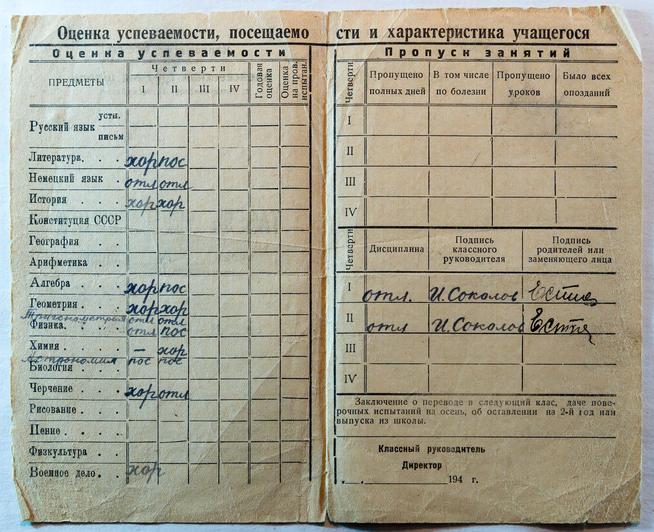 Оценка успеваемости, посещаемости и характеристика учащегося
Оценка успеваемости
ПРЕДМЕТЫ
Четверти
I II III IV
Годовая оценка
Оценка на пров. испытан.
Русский язык устн.
письм
Литература. . . хор пос
Немецкий язык . отл отл
История . . . хор хор
Конституция СССР
География . .
Арифметика . .
Алгебра . . . хор пос
Геометрия . . . хор хор
Тригонометрия отл отл
Физика. . . отл пос
Химия . . . — хор
Астрономия пос пос
Биология . .
Черчение . . . хор отл
Рисование . . .
Пение . . . .
Физкультура . .
Военное дело . . хор
Пропуск занятий
Четверти
Пропущено полных дней
В том числе по болезни
Пропущено уроков
Было всех опозданий
I
II
III
IV
Четверти
Дисциплина
Подпись классного руководителя
Подпись родителей или заменяющего лица
I отл. И. Соколов
II отл И. Соколов
III
IV
Заключение о переводе в следующий клас, даче пове-
рочных испытаний на осень, об оставлении на 2-й год или
выпуска из школы.
Классный руководитель
Директор
194 г.